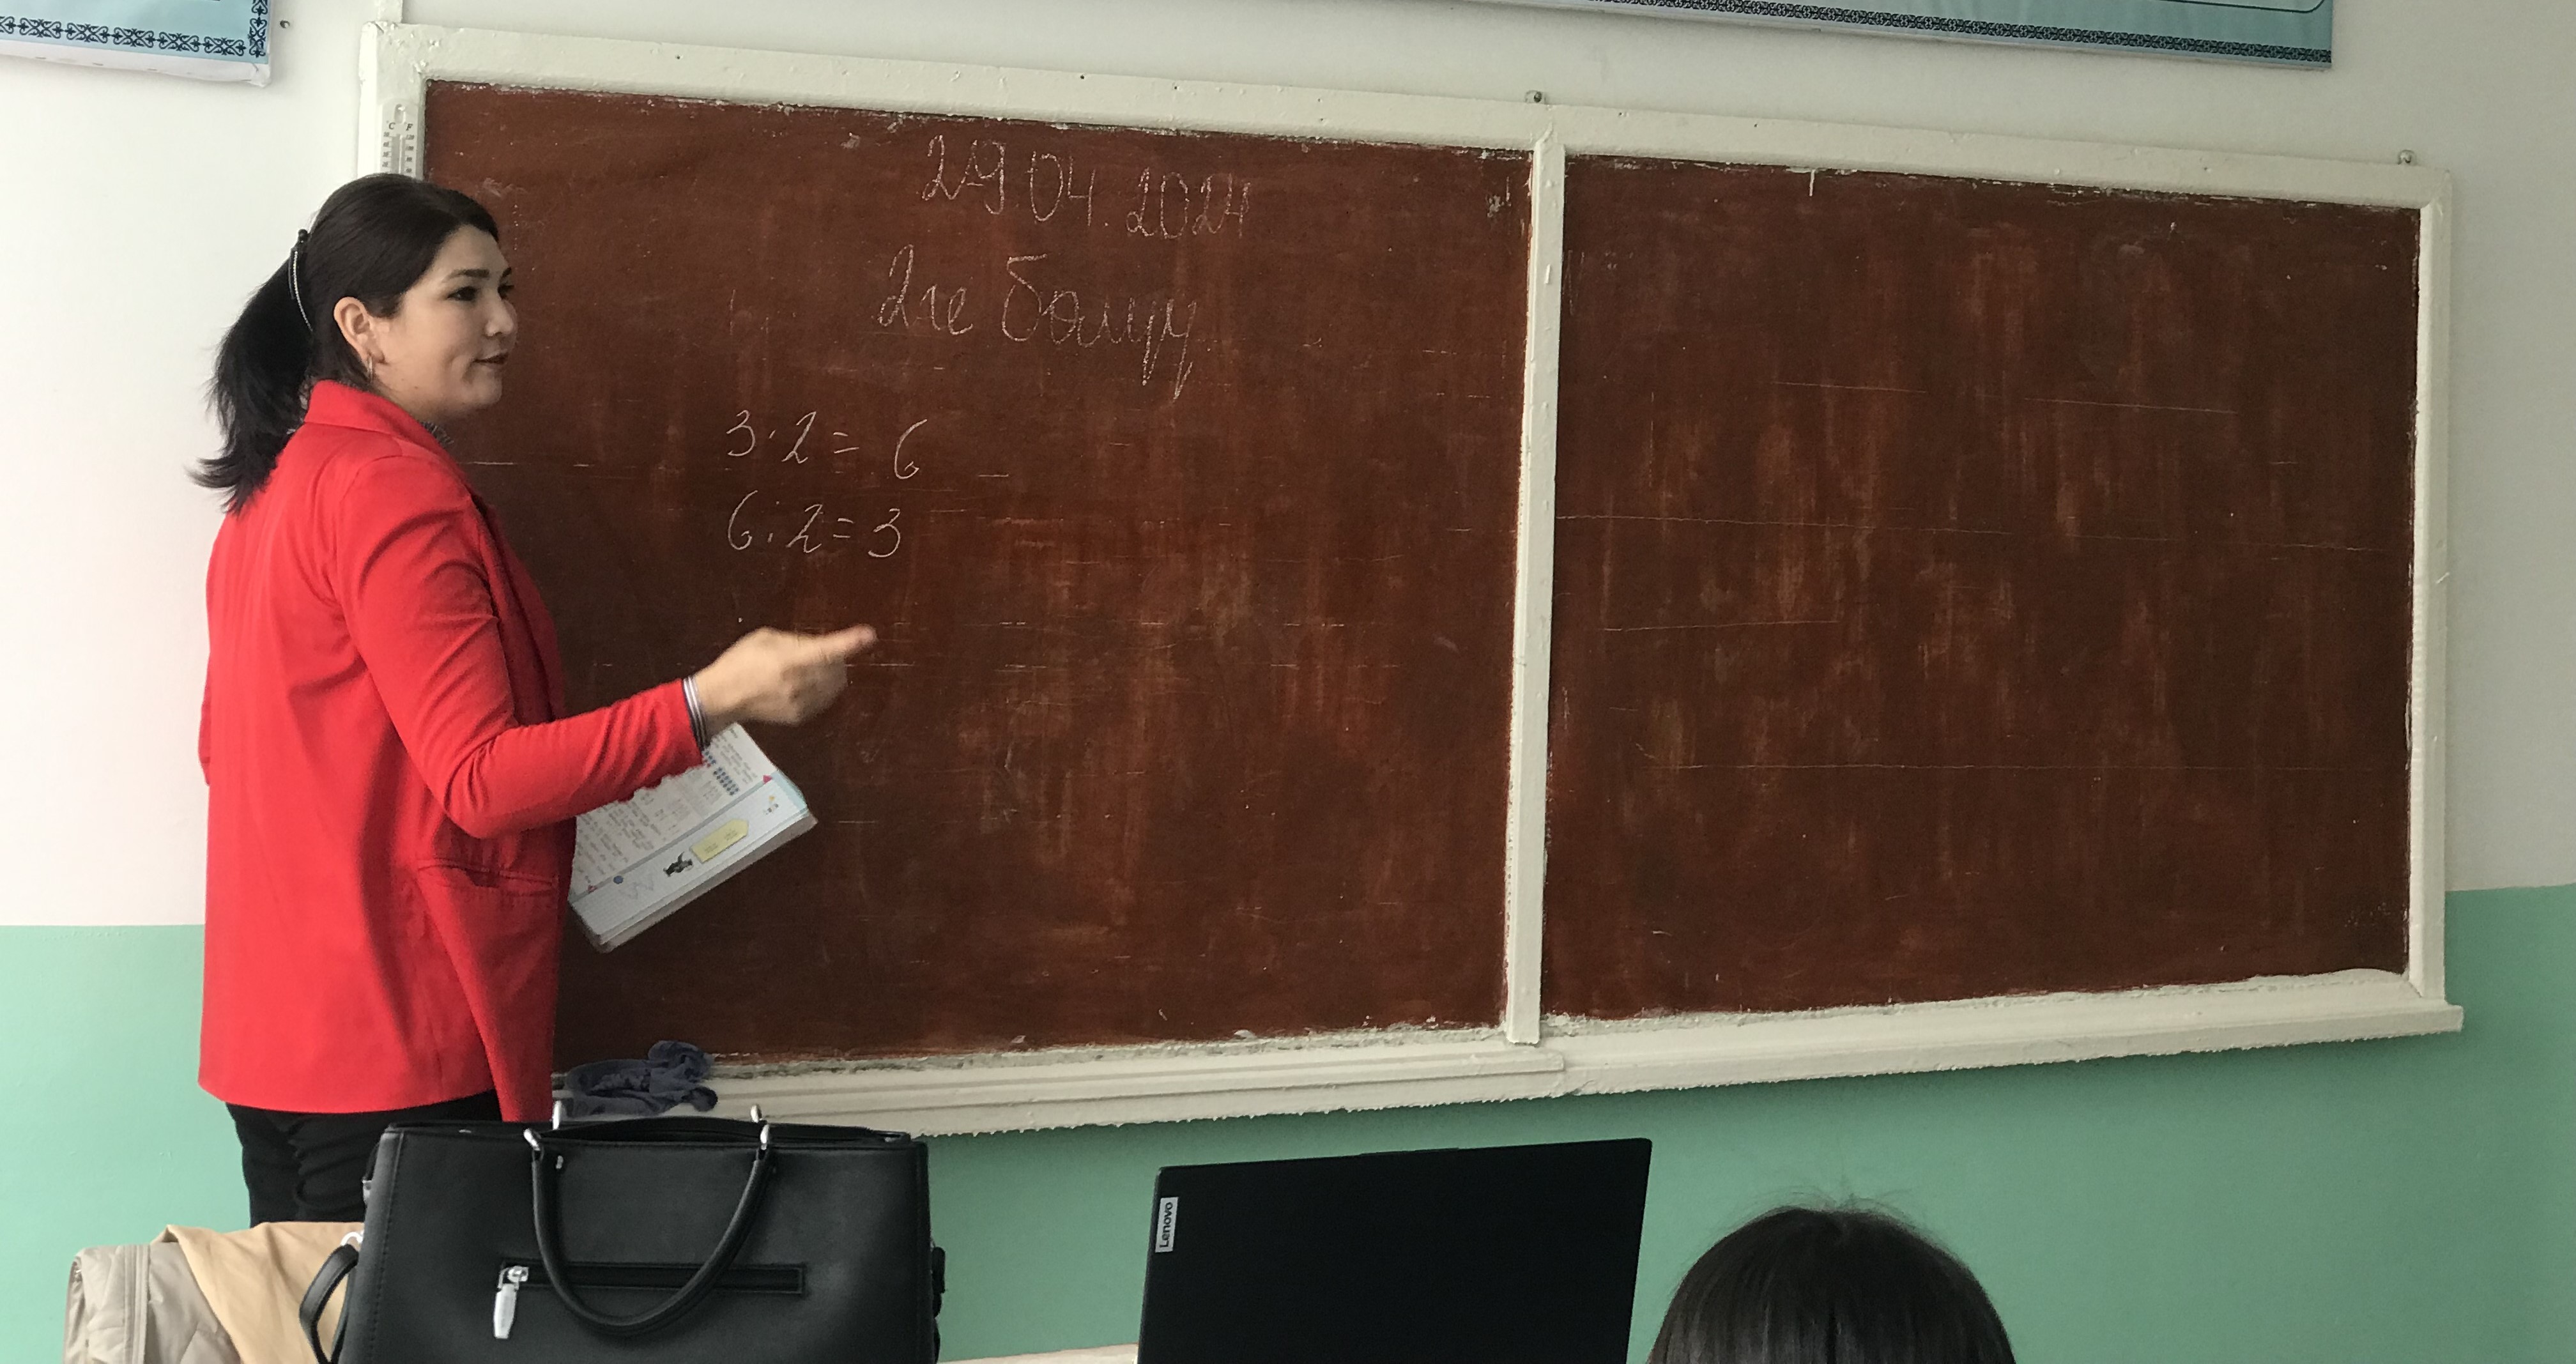 29.04.2024
2ге бөлүү
3·2= 6
6:2=3
C F
Lenovo